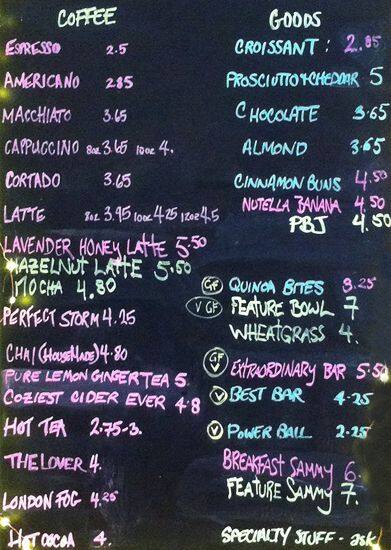 COFFEE
ESPRESSO 2.5
AMERICANO 2.85
MACCHIATO 3.65
CAPPUCCINO 8oz 3.65 10oz 4.
CORTADO 3.65
LATTE 8oz 3.95 10oz 4.25 12oz 4.5
LAVENDER HONEY LATTE 5.50
HAZELNUT LATTE 5.50
MOCHA 4.80
PERFECT STORM 4.25
CHAI (HOUSEMADE) 4.80
PURE LEMON GINGER TEA 5.
COZIEST CIDER EVER 4.8
HOT TEA 2.75-3.
THE LOVER 4.
LONDON FOG 4.25
HOT COCOA 4.
GOODS
CROISSANT: 2.85
PROSCIUTTO & CHEDDAR 5
CHOCOLATE 3.65
ALMOND 3.65
CINNAMON BUNS 4.50
NUTELLA BANANA 4.50
PBJ 4.50
GF QUINOA BITES 3.25
V GF FEATURE BOWL 7
WHEATGRASS 4.
GF V EXTRAORDINARY BAR 5.50
V BEST BAR 4.25
V POWER BALL 2.25
BREAKFAST SAMMY 6.
FEATURE SAMMY 7.
SPECIALTY STUFF - ask